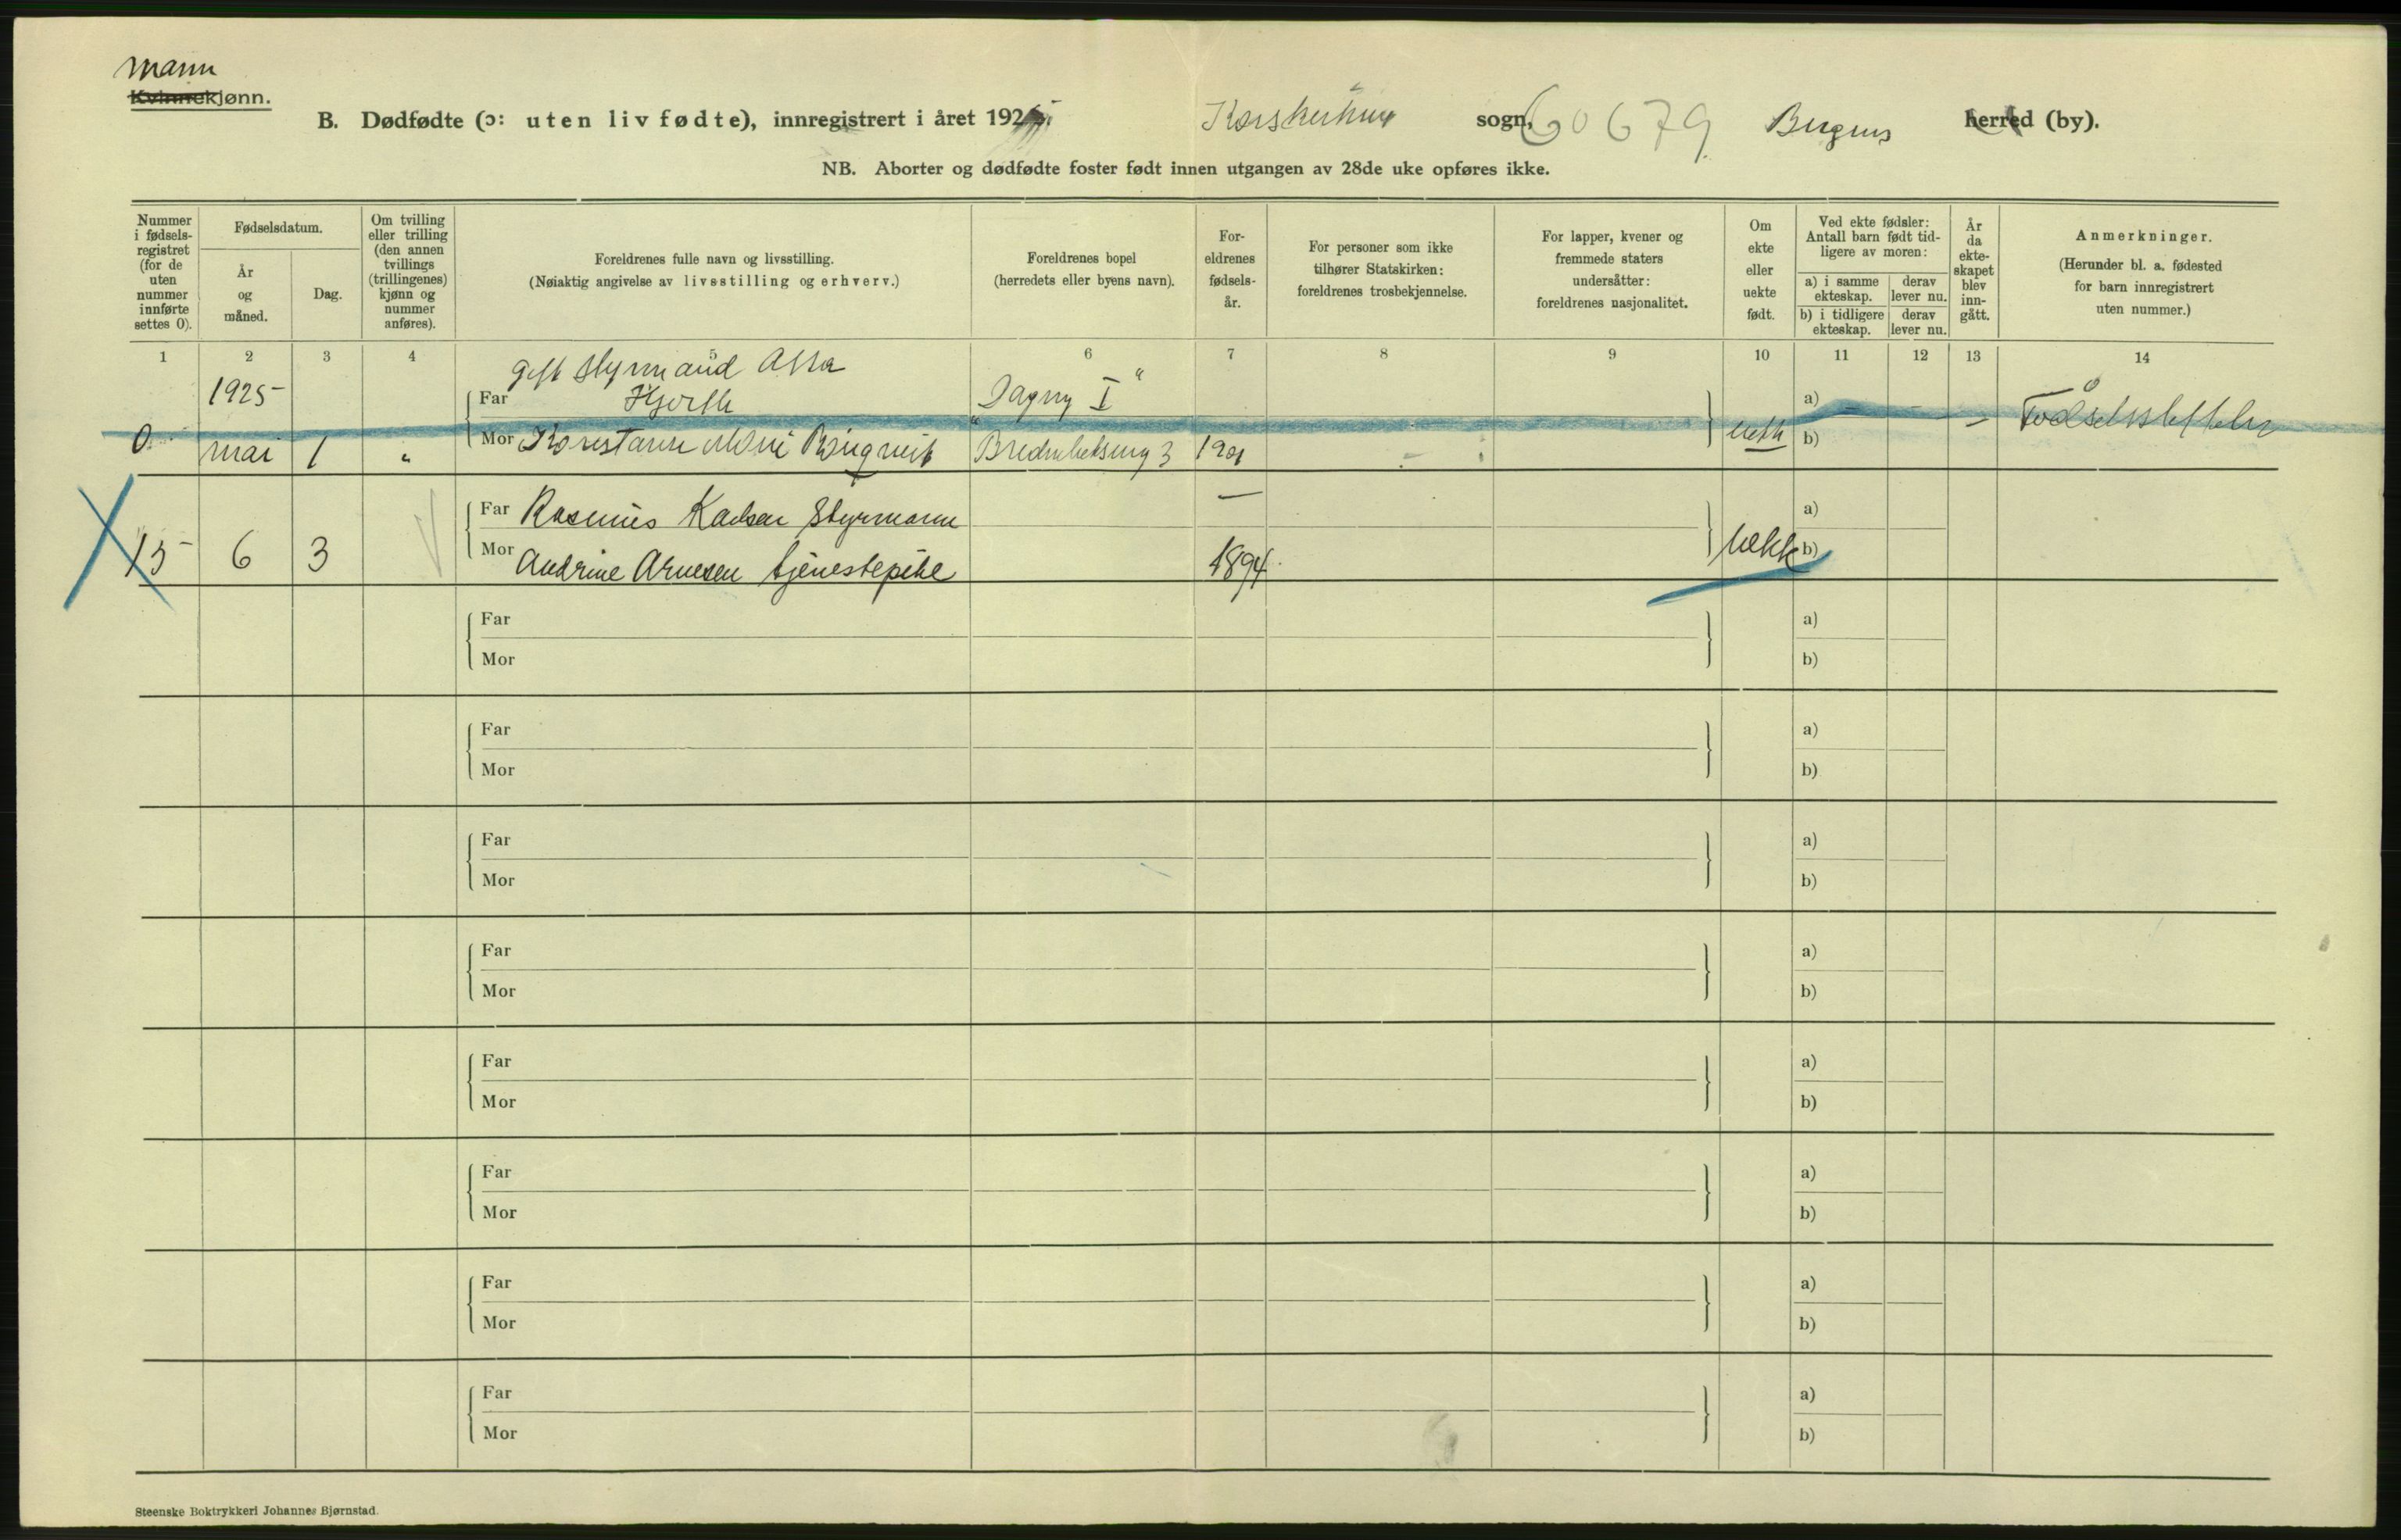 mann
Kvinnekjønn.
B. Dødfødte (ɔ: uten liv fødte), innregistrert i året 192 sogn, 60679 Bergens herred (by).
NB. Aborter og dødfødte foster født innen utgangen av 28de uke opføres ikke.
Nummer i fødsels-registret (for de uten nummer innførte settes 0).
Fødselsdatum.
År og måned.
Dag.
Om tvilling eller trilling (den annen tvillings (trillingenes) kjønn og nummer anføres).
Foreldrenes fulle navn og livsstilling.
(Nøiaktig angivelse av livsstilling og erhverv.)
Foreldrenes bopel
(herredets eller byens navn).
For-eldrenes fødsels-år.
For personer som ikke tilhører Statskirken: foreldrenes trosbekjennelse.
For lapper, kvener og fremmede staters undersåtter: foreldrenes nasjonalitet.
Om ekte eller uekte født.
Ved ekte fødsler: Antall barn født tid-ligere av moren:
a) i samme ekteskap.
derav lever nu.
b) i tidligere ekteskap.
derav lever nu.
År da ekte-skapet blev inn-gått.
Anmerkninger.
(Herunder bl. a. fødested for barn innregistrert uten nummer.)
1 2 3 4 5 6 7 8 9 10 11 12 13 14
gift Styrmand
1925 Far Hjorth "Dagny I" a) – – –
0. mai 1 " Mor 3 1901 – uekte b)
Far Rasmus Karlsen Styrmann — a)
15 6 3 Mor Andrine Arnesen tjenestepike 1894 uekte b)
Far a)
Mor b)
Far a)
Mor b)
Far a)
Mor b)
Far a)
Mor b)
Far a)
Mor b)
Far a)
Mor b)
Far a)
Mor b)
Far a)
Mor b)
Steenske Boktrykkeri Johannes Bjørnstad.